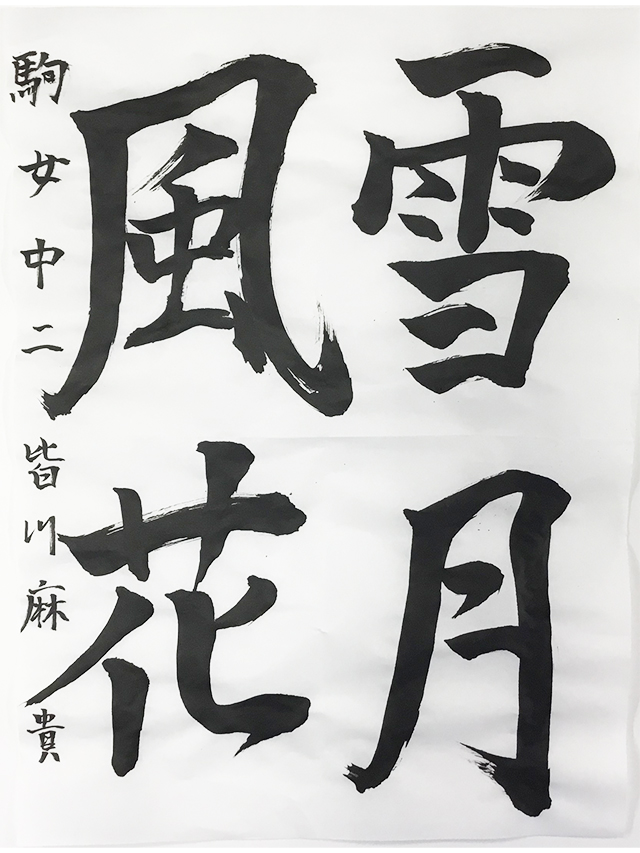 雪月
風花
駒女中二 皆川麻貴